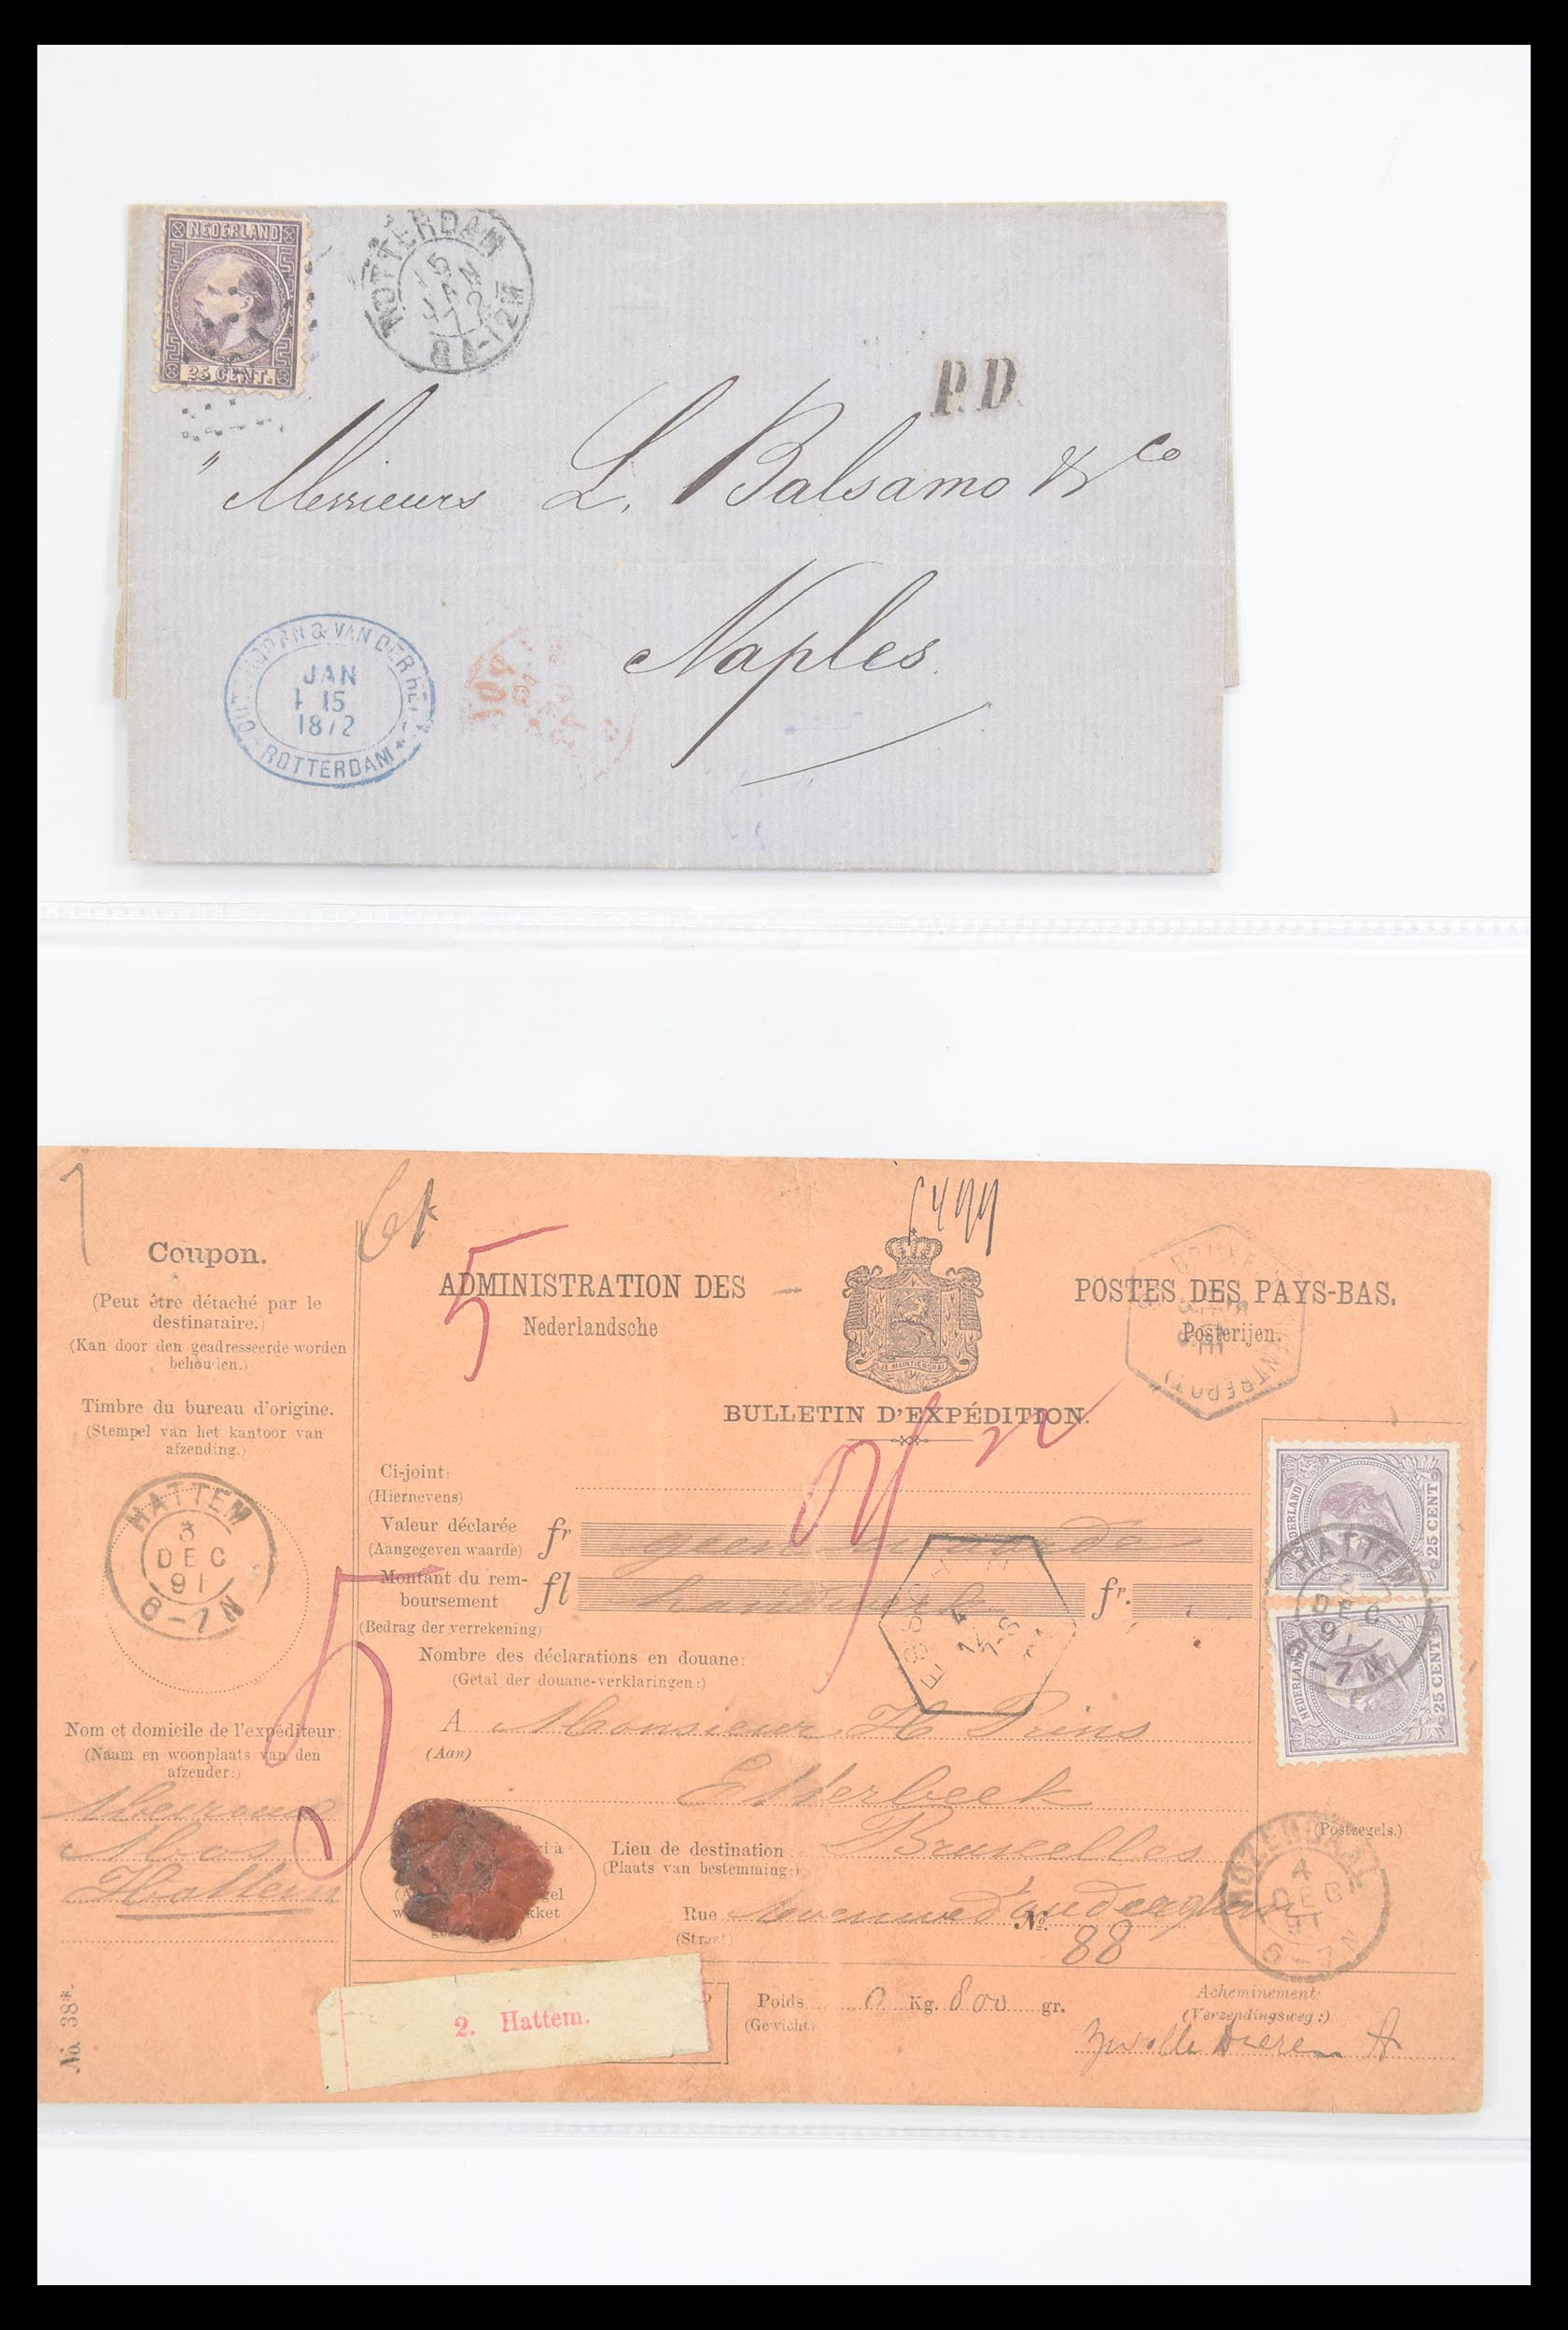 NEDERLAND
25 CENT.
ROTTERDAM
15
8A-12M
P.D.
Messieurs L. Balsamo & Co
Naples
& VAN DER
JAN
15
1872
ROTTERDAM
1499
Coupon.
(Peut être détaché par le
destinataire.)
(Kan door den geadresseerde worden
behouden.)
Timbre du bureau d'origine.
(Stempel van het kantoor van
afzending.)
HATTEM
3
DEC
91
6-7N
Nom et domicile de l'expéditeur:
(Naam en woonplaats van den
afzender:)
Mos
Hattem
No. 38*.
5
ADMINISTRATION DES POSTES DES PAYS-BAS.
Nederlandsche Posterijen.
JE MAINTIENDRAI
(ENTREPOT)
BULLETIN D'EXPÉDITION.
Ci-joint:
(Hiernevens)
Valeur déclarée fr
(Aangegeven waarde)
Montant du rem-
boursement fl fr.
(Bedrag der verrekening)
Nombre des déclarations en douane:
(Getal der douane-verklaringen:)
NEDERLAND
25 CENT
NEDERLAND
25 CENT
HATTEM
3
DEC
91
6-7N
5
A Monsieur H Prins
(Aan)
Etterbeek
(Postzegels.)
Lieu de destination Bruxelles
(Plaats van bestemming:)
Rue No. 88
(Straat)
ROZENDAAL
4
DEC
91
6-7N
2. Hattem.
Poids 0 Kg. 800 gr.
(Gewicht)
Acheminement:
(Verzendingsweg:)
Zwolle Dieren A